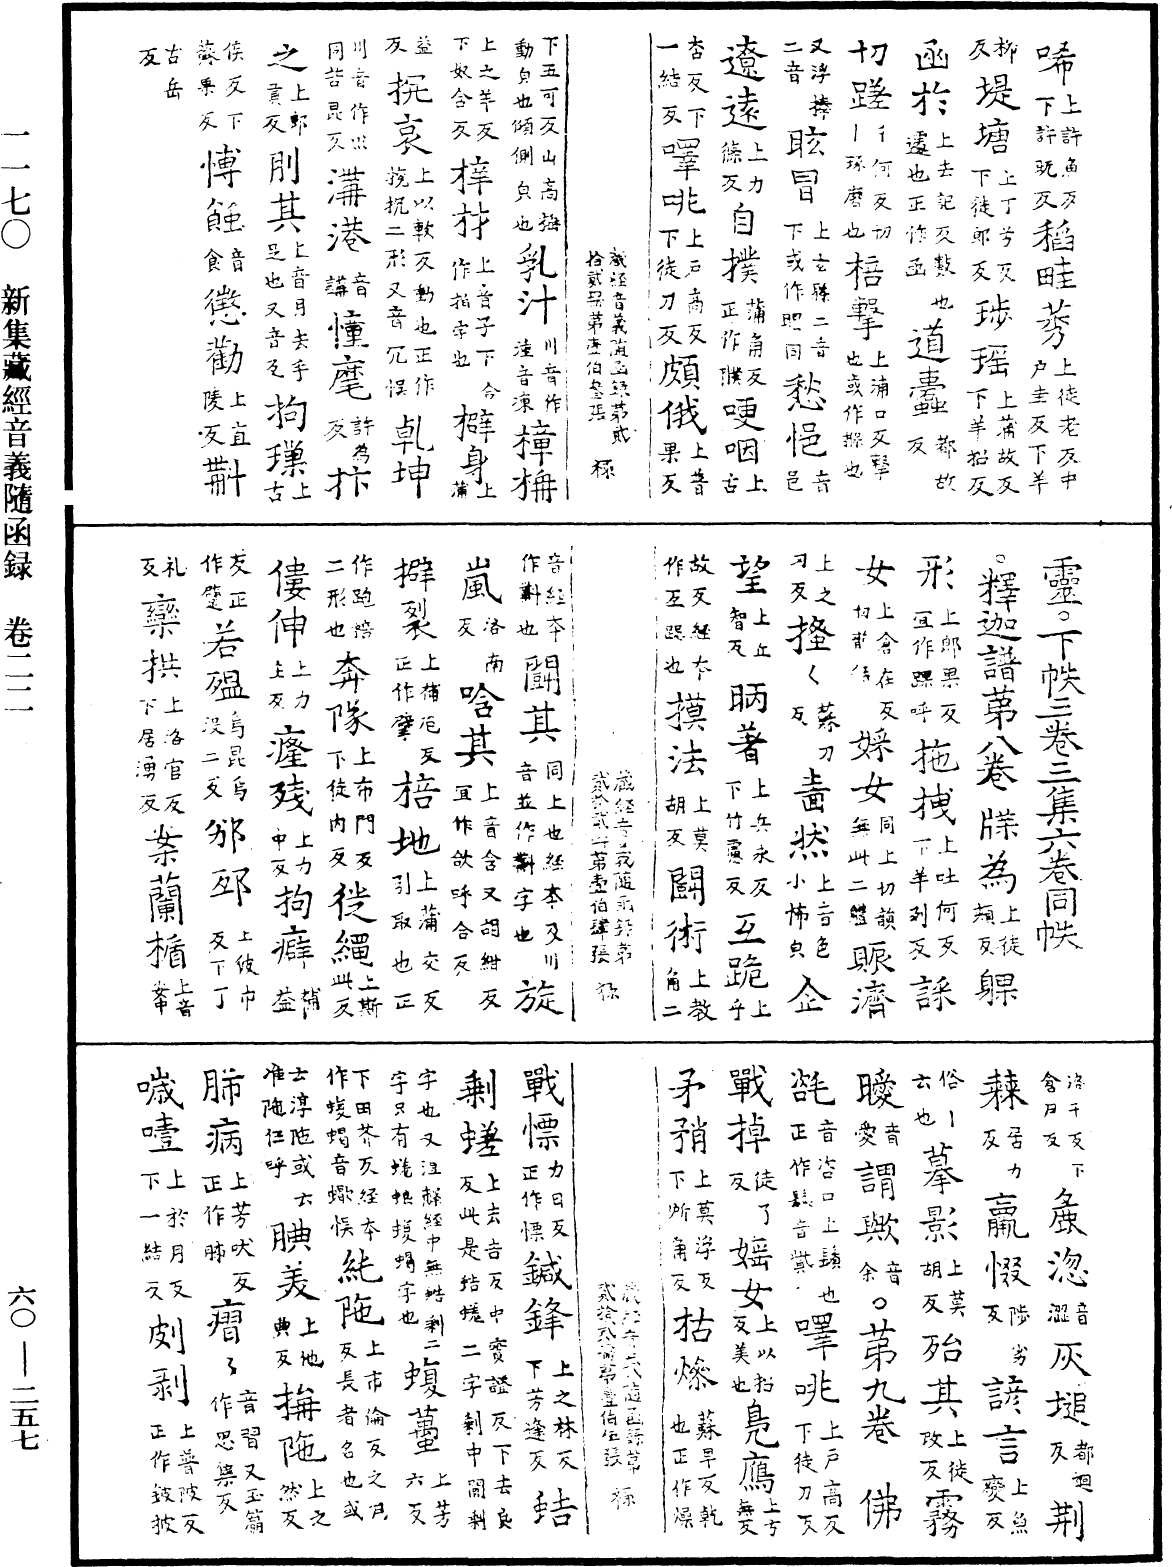 唏上許魚反下許既反稻畦蒡上徒老反中戶圭反下羊
柳反堤塘上丁兮反下徒郎反琗瑶上蒲故反下羊招反
函於上去記反數也遽也正作亟道蠹都故反
切蹉千何反切丨琢磨也棓擊上蒲口反擊也或作掊也
又浮棒二音眩冐上玄縣二音下或作䀏同愁悒音邑
遼遠上力條反自撲蒲角反正作㩧哽咽上古
杏反下一結反㘁咷上戶高反下徒刀反頗俄上普果反
藏經音義隨函錄第貳拾貳冊第壹伯叁張 㮈
下五可反山高㨾動皃也傾側皃也乳汁川音作湩音凍樟栴
上之羊反下奴含反梓材上音子下合作指字也擗身上蒲
益反抏哀上以軟反動也正作㨪抏二形又音兀悮乹坤
川音作巛同苦昆反溝港音講憧麾許為反抃
之上郎貢反刖其上音月去手足也又音兀拘璅上古
侯反下蘇果反愽䬣音食懲勸上直陵反斠
古岳反
靈。下帙三卷三集六卷同帙
。釋迦譜第八卷 牒為上徒頰反躶
形上郎果反宜作踝呼拖拽上吐何反下羊列反䌽
女上倉在反切韻作婇女同上切韻無此二體賑濟
上之刃反搔〻蘇刀反啬然上音色小怖皃企
望上丘智反昞著上兵永反下竹慮反互跪上乎
故反經本作㸦誤也摸法上莫胡反鬪術上教角二
藏經音義隨函錄第貳拾貳冊第壹伯肆張 㮈
音經本作㪷也鬪其同上也經本及川音並作㪷字也旋
嵐洛南反唅其上音含又胡紺反宜作欱呼合反
擗裂上補厄反正作擘棓地上蒲交反引取也正
作跑掊二形也奔隊上布門反下徒內反徙繩上斯此反
僂伸上力主反癃殘上力中反拘癖補益
反正作躄若殟烏昆烏沒二反邠邳上彼巾反下丁
礼反欒拱上洛官反下居湧反桊蘭楯上音拳中
洛干反下食尹反麁澁音澀灰塠都迴反荆
棘居力反羸惙陟劣反諺言上魚變反
俗丨云也摹影上莫胡反殆其上徒改反霧
曖音愛謂歟音余。第九卷 佛
髭音咨口上鬚也正作髭音貲㘁咷上戶高反下徒刀反
戰掉徒了反媱女上以招反美也鳧鴈上方無反
矛矟上莫浮反下所角反枯燥蘇早反乾也正作燥
藏經音義隨函錄第貳拾貳冊第壹伯伍張 㮈
戰慄力日反正作慄鍼鋒上之林反下芳逢反蛣
剩蜣上去吉反中實證反下去良反此是蛣蜣二字剩中間剩
字也又沮䋲經中無蛣剩二字只有蜣蜋蝮蝎字也蝮蠆上芳六反
下田芥反經本作蝮蝎音蠍悮純陁上市倫反之月反長者名也或
云淳陁或云准陁仁呼腆美上他典反搙陁上之然反
胏病上芳吠反正作肺癟〻音習又玉篇作思集反
噦噎上於月反下一結反剫剥上普陂反正作鈹披
一一七〇 新集藏經音義隨函録 卷二二
六〇—二五七